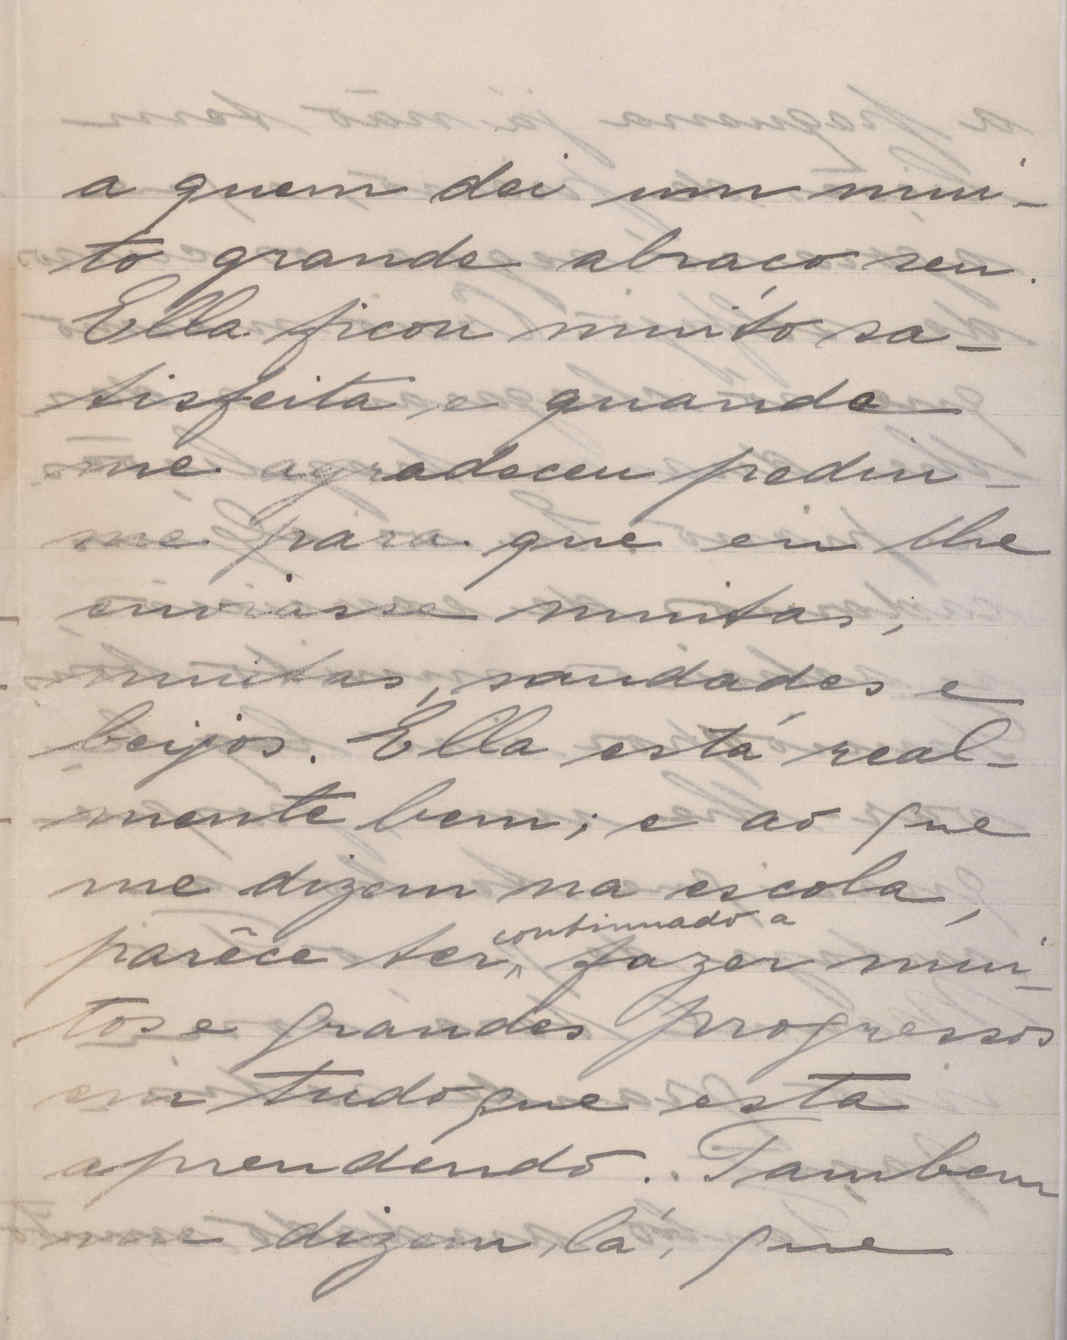 a quem dei um mui-
to grande abraço seu.
Ella ficou muito sa-
tisfeita e quando
me agradeceu pediu-
me para que eu lhe
enviasse muitas,
muitas, saudades e
beijos. Ella está real-
mente bem; e ao que
me dizem na escola,
parêce ter continuado a fazer mui-
tos e grandes progressos
em tudo que esta
aprendendo. Tambem
me dizem lá, que